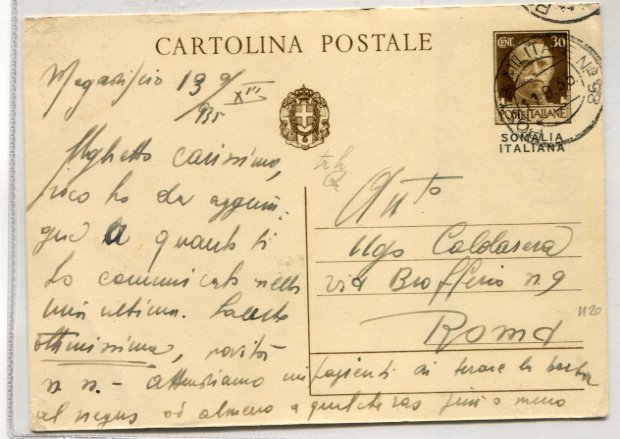 CARTOLINA POSTALE
CENT. 30
POSTE ITALIANE
SOMALIA
ITALIANA
MILITARE Nº 98
13 9/935 XIII
Ughetto carissimo,
poco ho da aggiun-
gere a quanto ti
ho comunicato nella
mia ultima. Salute
ottimissima, novità
n n. - attendiamo impazienti di tirare la barba
al negus od almeno a qualche ras più o meno
Ugo Caldarera
via Brofferio n. 9
Roma
1120